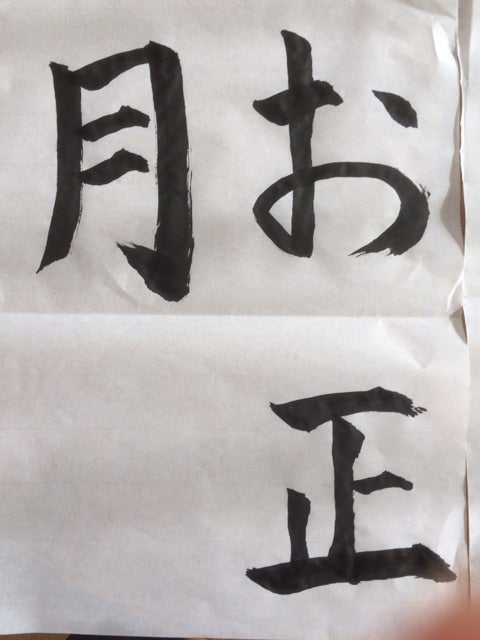 お正
月